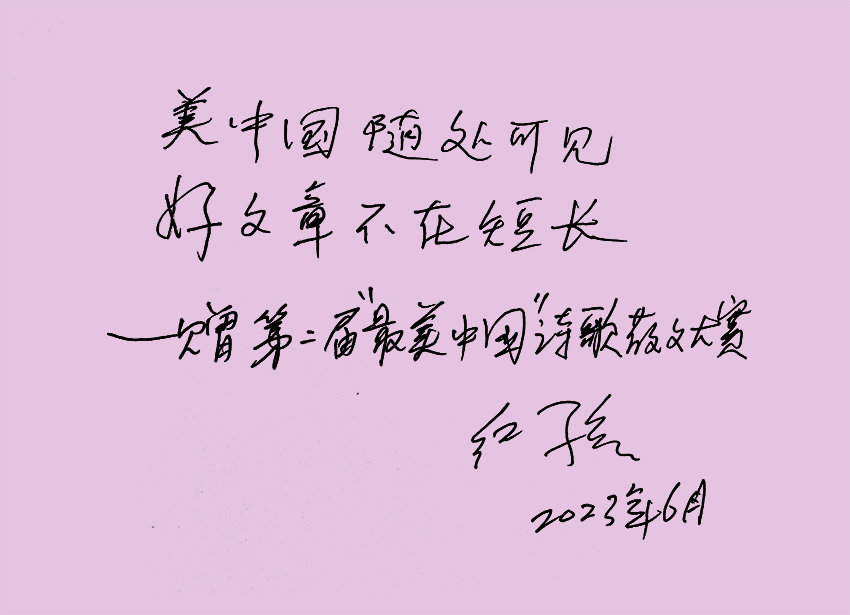 美中国随处可见
好文章不在短长
——赠第二届“最美中国”诗歌散文大赛
红孩
2023年6月